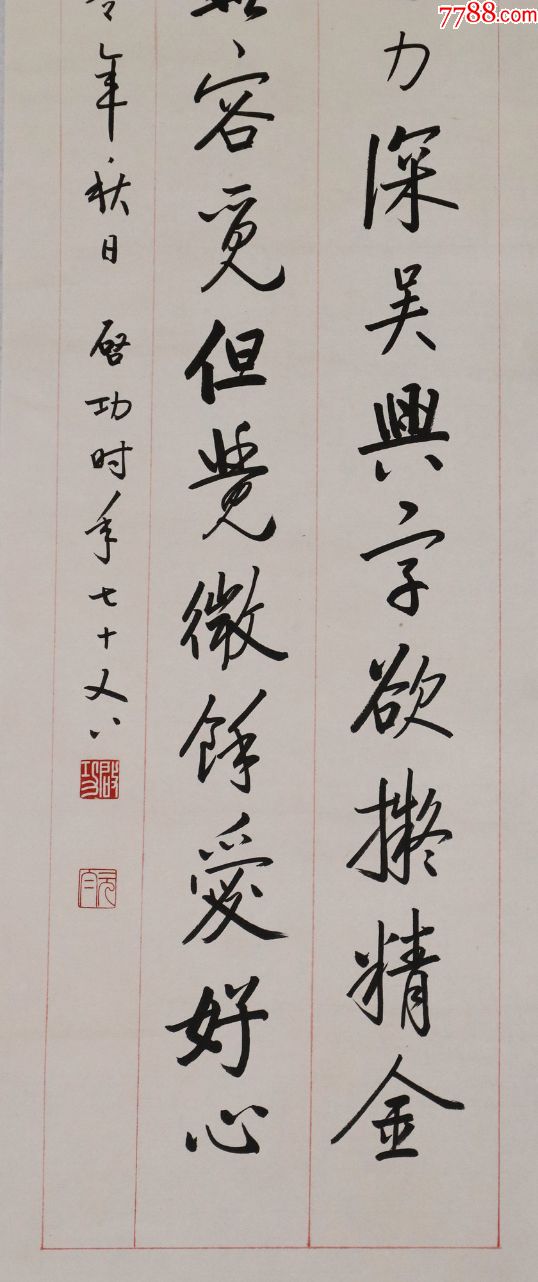 7788.com
力深吴興字欲擬精金
容覓但覺微餘愛好心
年秋日 啓功时年七十又八
啟功
元白